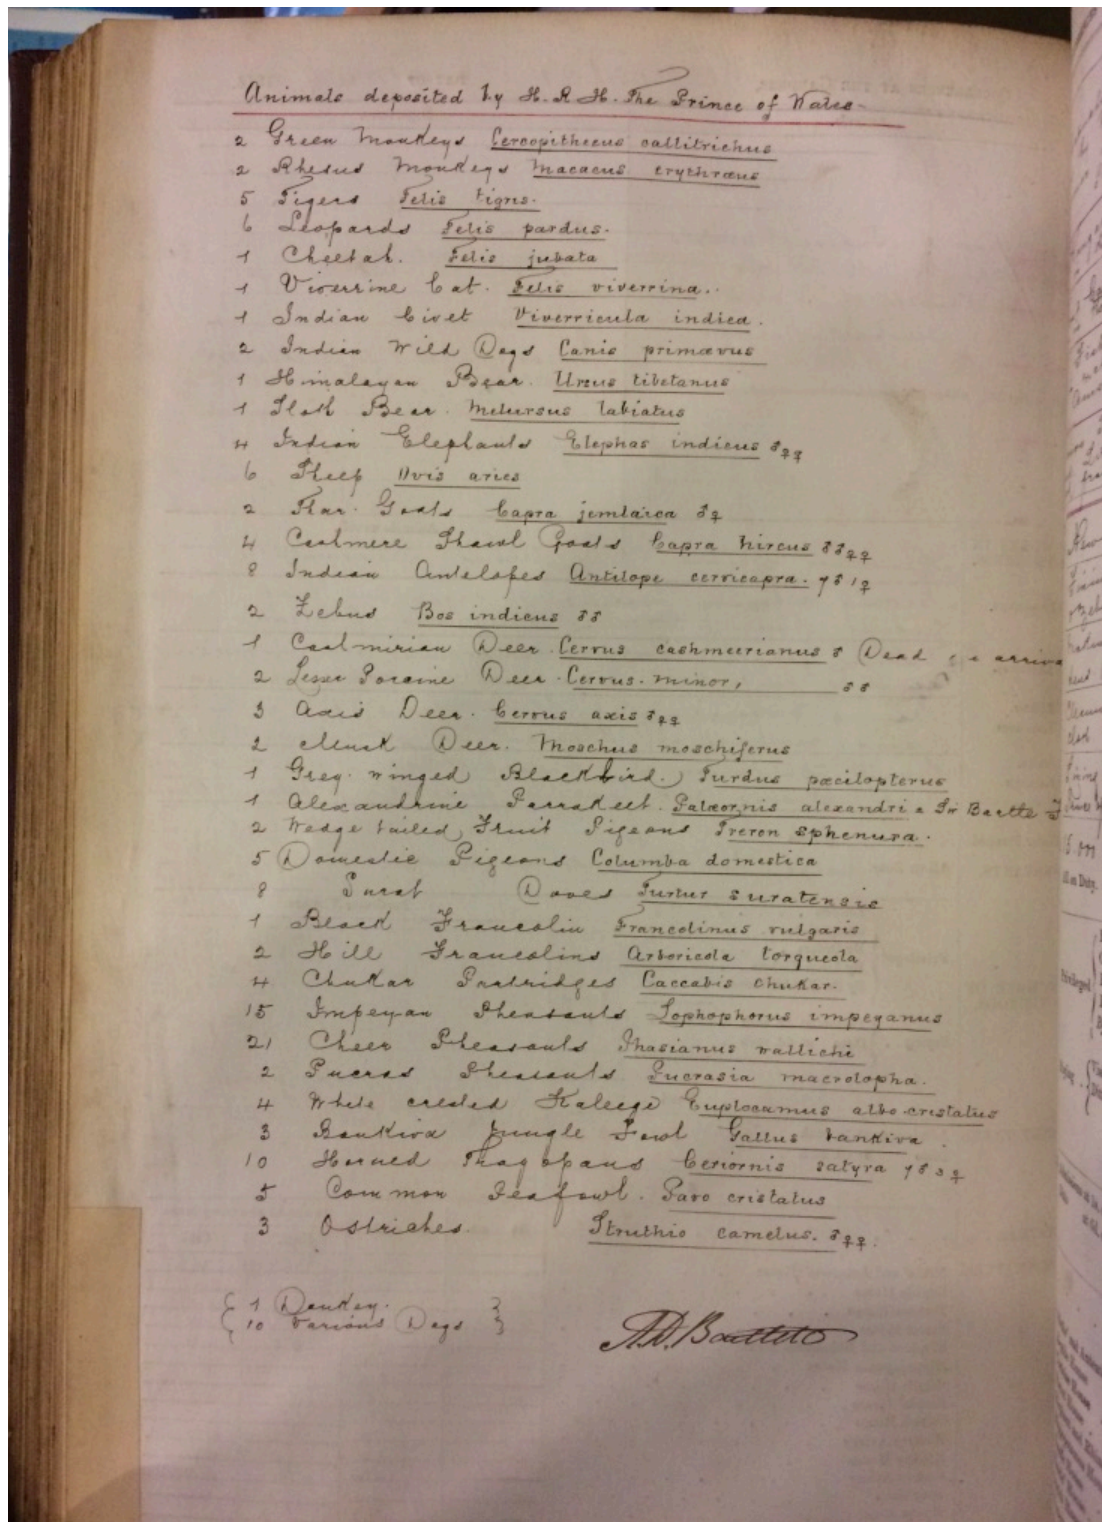 Animals deposited by H.R.H. The Prince of Wales-
2 Green Monkeys Cercopithecus callitrichus
2 Rhesus Monkeys Macacus erythræus
5 Tigers Felis tigris.
6 Leopards Felis pardus.
1 Cheetah. Felis jubata
1 Viverrine Cat. Felis viverrina..
1 Indian Civet Viverricula indica.
2 Indian Wild Dogs Canis primævus
1 Himalayan Bear. Ursus tibetanus
1 Sloth Bear. Melursus labiatus
4 Indian Elephants Elephas indicus ♂♀♀
6 Sheep Ovis aries
2 Thar. Goats Capra jemlaica ♂♀
4 Cashmere Shawl Goats Capra hircus ♂♂♀♀
8 Indian Antelopes Antilope cervicapra. 7♂ 1♀
2 Zebus Bos indicus ♂♂
1 Cashmirian Deer. Cervus cashmeerianus ♂ Dead on arriva
2 Lesser Porcine Deer. Cervus. minor, ♂♂
3 Axis Deer. Cervus axis ♂♀♀
2 Musk Deer. Moschus moschiferus
1 Grey. winged Blackbird.) Turdus pæcilopterus
1 Alexandrine Parrakeet. Palæornis alexandri Sir Bartle F
2 Wedge tailed, Fruit Pigeons Treron sphenura.
5 Domestic Pigeons Columba domestica
8 Surat Doves Turtur suratensis
1 Black Francolin Francolinus vulgaris
2 Hill Francolins Arboricola torqueola
4 Chukar Partridges Caccabis chukar.
15 Impeyan Pheasants Lophophorus impeyanus
21 Cheer Pheasants Phasianus wallichi
2 Pucras Pheasants Pucrasia macrolopha.
4 White crested Kaleege Euplocamus albo-cristatus
3 Bankiva Jungle Fowl Gallus bankiva.
10 Horned Tragopans Ceriornis satyra 7♂ 3♀
5 Common Peafowl. Pavo cristatus
3 Ostriches. Struthio camelus. ♂♀♀.
{ 1 Donkey. }
{ 10 Various Dogs }
A.D. Bartlett